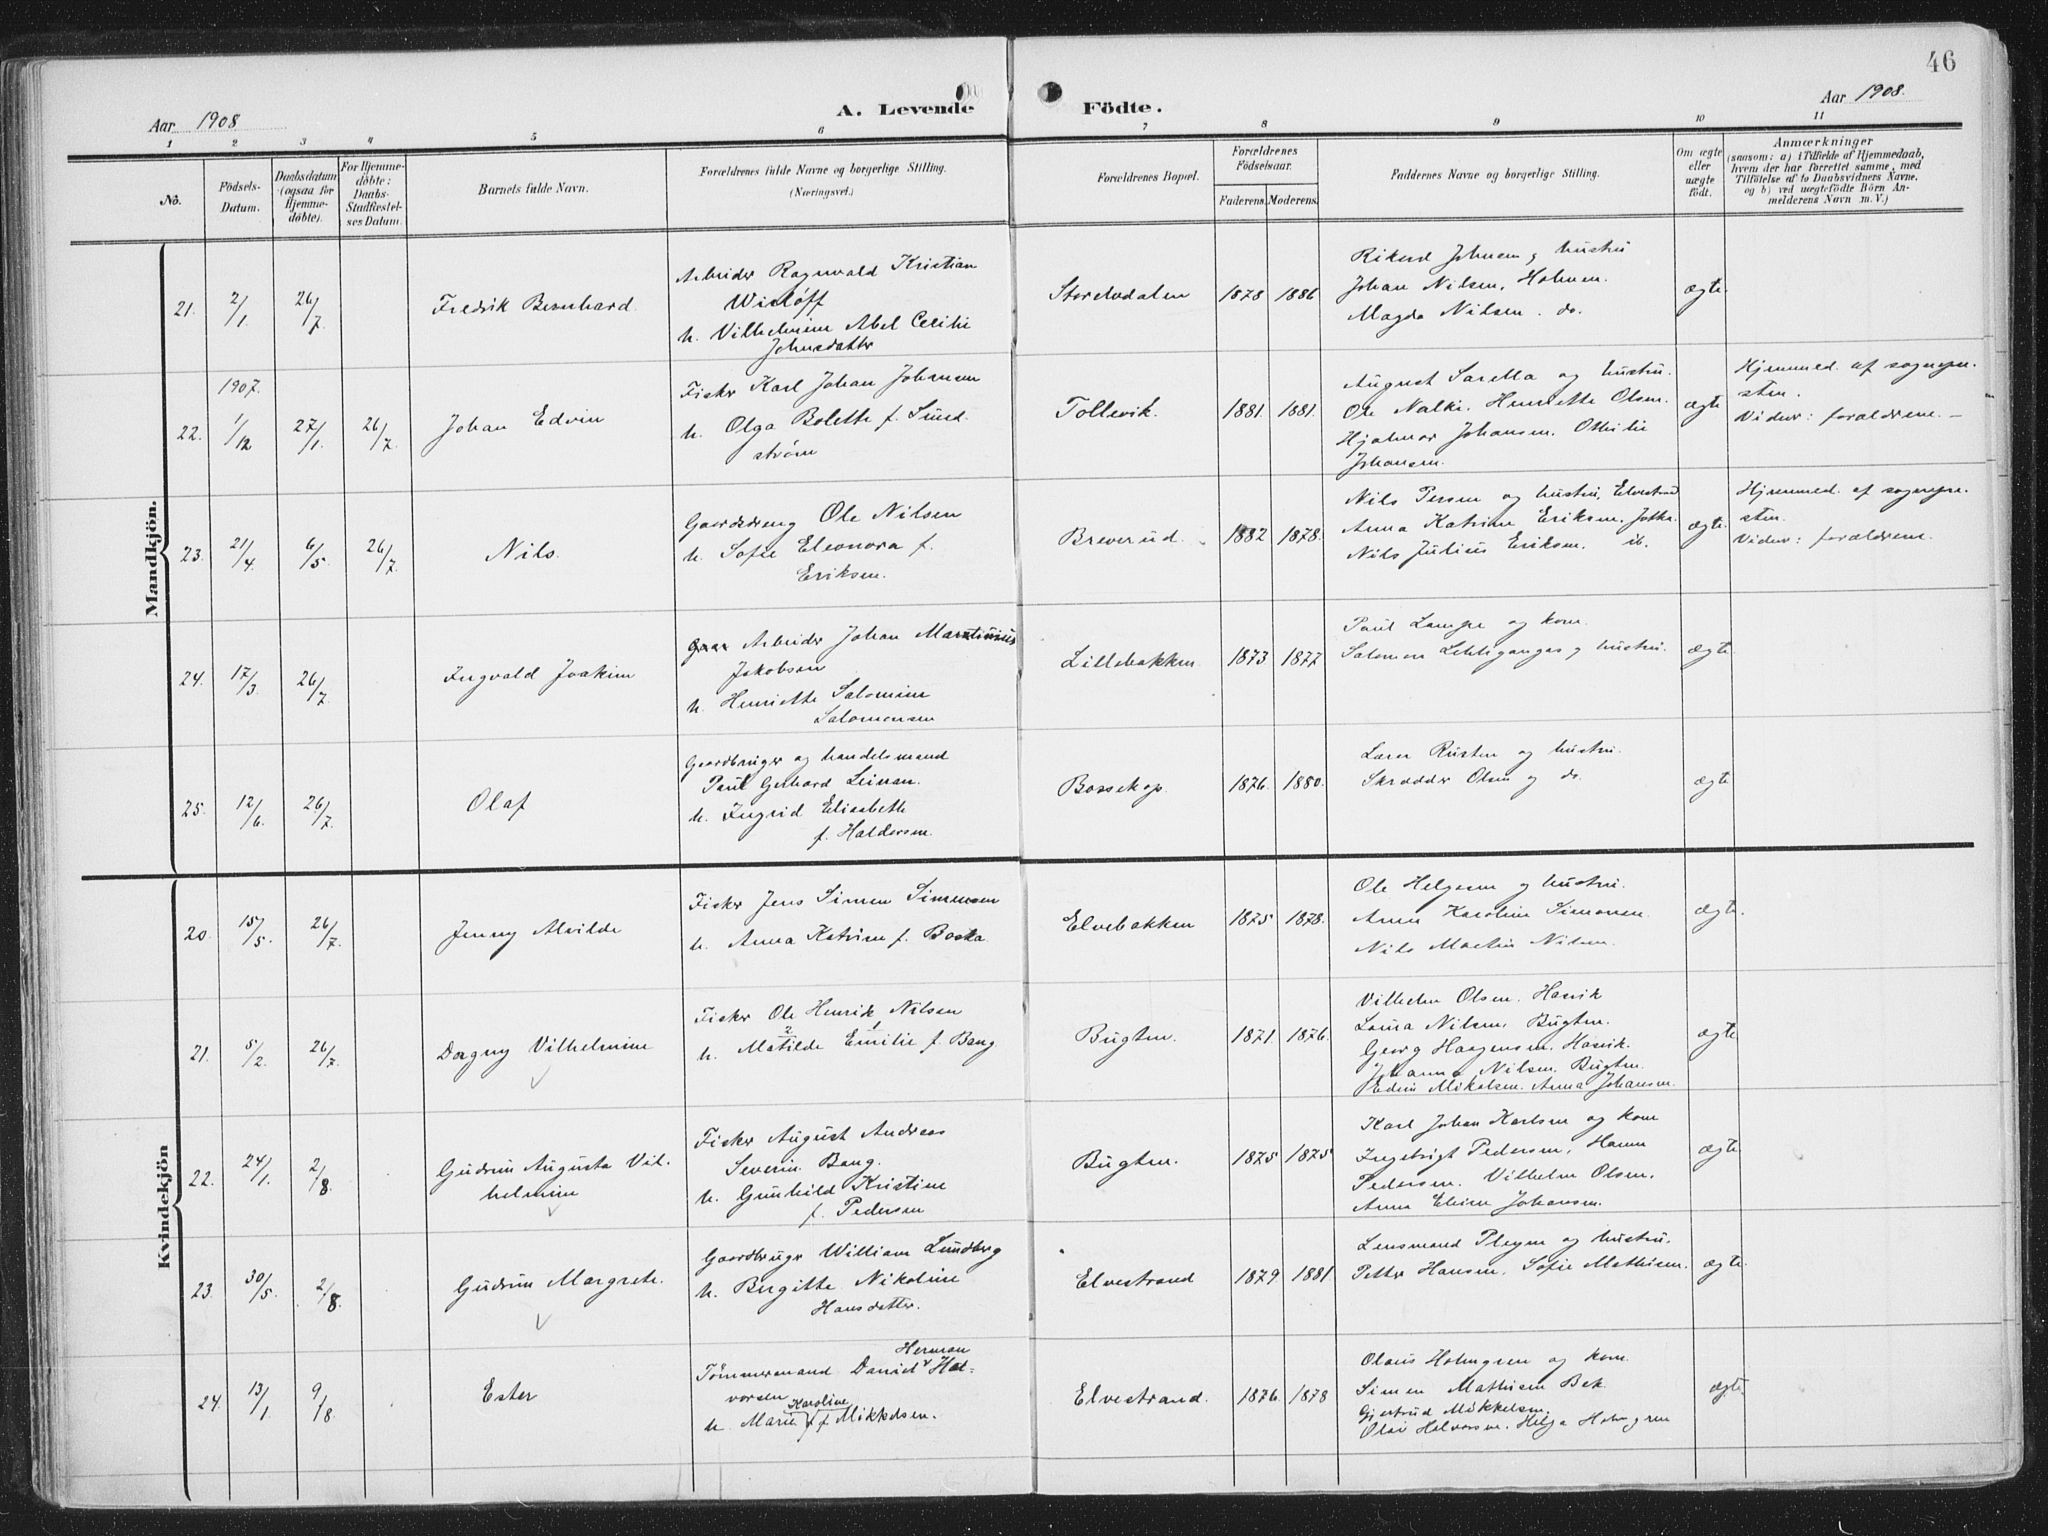 46
Aar 1908
A. Levende Födte.
Aar 1908.
1 2 3 4 5 6 7 8 9 10 11
No.
Födsels-
Datum.
Daabsdatum
(ogsaa for
Hjemme-
döbte).
For Hjemme-
döbte:
Daabs-
Stadfæstel-
ses Datum.
Barnets fulde Navn.
Forældrenes fulde Navne og borgerlige Stilling.
(Næringsvei.)
Forældrenes Bopæl.
Forældrenes
Födselsaar.
Faderens. Moderens.
Faddernes Navne og borgerlige Stilling.
Om ægte
eller
uægte
født.
Anmærkninger
(saasom: a) i Tilfælde af Hjemmedaab,
hvem der har forrettet samme, med
Tilföielse af to Daabsvidners Navne,
og b) ved uægtefödte Börn An-
melderens Navn m. V.)
Mandkjön.
21. 2/1. 26/7 Fredrik Bernhard.
Arbeider Ragnvald Kristian
Wislöff
h. Vilhelmine Abel Cecilie
Johnsdatter
Storelvdalen 1878 1886
Rikard Johnsen og hustru
Johan Nilsen, Holmen.
Magda Nilsen. do.
ægte
22. 1907. 1/12 27/1. 26/7. Johan Edvin
Fisker Karl Johan Johansen
h. Olga Bolette f. Sund-
ström
Tollevik. 1881. 1881.
August Sarella og hustru.
Ole Nalki. Henriette Olsen.
Hjalmar Johansen. Ottilie
Johansen.
ægte
Hjemmed. af sognepre-
sten.
Vidner: forældrene. –
23. 21/4. 6/5 26/7. Nils.
Gaardsdreng Ole Nilsen
h. Sofie Eleonora f.
Eriksen.
Breverud. 1882 1878.
Nils Persen og hustru, Elvestrand
Anna Katrine Eriksen. Jotka.
Nils Julius Eriksen. ib.
ægte.
Hjemmed. af sognepre-
sten.
Vidner: forældrene.
24. 17/3. 26/7. Ingvald Joakim
Arbeider Johan Martinius
Jakobsen
h. Henriette Salomine
Salomonsen
Lillebakken 1873 1877
Paul Lampe og kone.
Salomon og hustru.
ægte.
25. 12/6. 26/7. Olaf
Gaardbruger og handelsmand
Paul Gerhard Leinan.
h. Ingrid Elisabeth
f. Haldorsen.
Bossekop. 1876. 1880.
Lærer Rusten og hustru.
Skrædder Olsen og do.
ægte
Kvindekjön
20. 15/5. 26/7. Jenny Alvilde
Fisker Jens Simon Simonsen
h. Anna Katrine f. Boska.
Elvebakken 1875 1878.
Ole Helgesen og hustru.
Anna Karoline Simonsen.
Nils Martin Nilsen.
ægte.
21. 5/2. 26/7. Dagny Vilhelmine
Fisker Ole Henrik Nilsen
2 1
h. Matilde Emilie f. Bang
Bugten. 1871. 1876.
Vilhelm Olsen. Hasvik
Lovisa Nilsen, Bugten.
Georg Haagensen. Hasvik.
Johanna Nilsen. Bugten.
Edvin Mikalsen. Anna Johansen.
ægte.
22. 24/1. 2/8. Gudrun Augusta Vil-
helmine
Fisker August Andreas
Severin Bang.
h. Gunhild Kristine
f. Pedersen
Bugten. 1875 1875
Karl Johan Karlsen og kone
Ingebrigt Pedersen, Hanna
Pedersen. Vilhelm Olsen.
Anna Elise Johansen.
ægte.
23. 30/5. 2/8. Gudrun Margrete.
Gaardbruger William Lundberg
h. Bergitte Nikoline
Hansdatter.
Elvestrand 1879. 1881.
Lensmand Pleym og hustru.
Petter Hansen. Sofie Mathisen.
ægte.
24. 13/1. 9/8. Ester
Herman
Tömmermand Daniel Hal-
vorsen
Karoline
h. Marie f. Mikkelsen.
Elvestrand. 1876. 1878
Olaus Holmgren og kone.
Simen Mathisen Bek.
Gjertrud Mikkelsen.
Olai Halvorsen. Helga Holmgren
ægte.